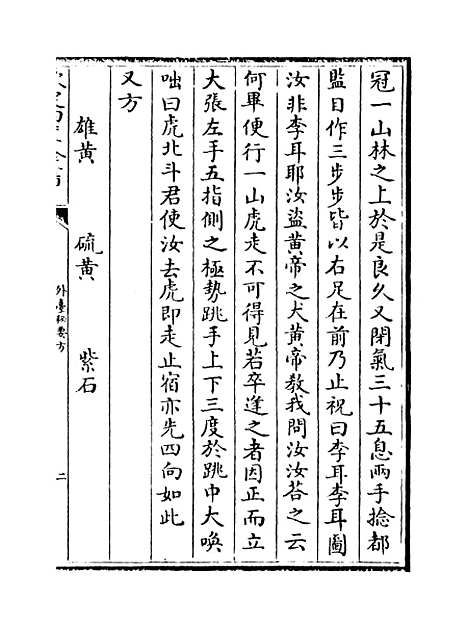 冠一山林之上於是良久又閉氣三十五息兩手捻都
監目作三步步皆以右足在前乃止祝曰李耳李耳圖
汝非李耳耶汝盜黄帝之犬黄帝教我問汝汝荅之云
何畢便行一山虎走不可得見若卒逢之者因正而立
大張左手五指側之極勢跳手上下三度於跳中大喚
咄曰虎北斗君使汝去虎即走止宿亦先四向如此
又方
雄黄 硫黄 紫石
外臺秘要方
二